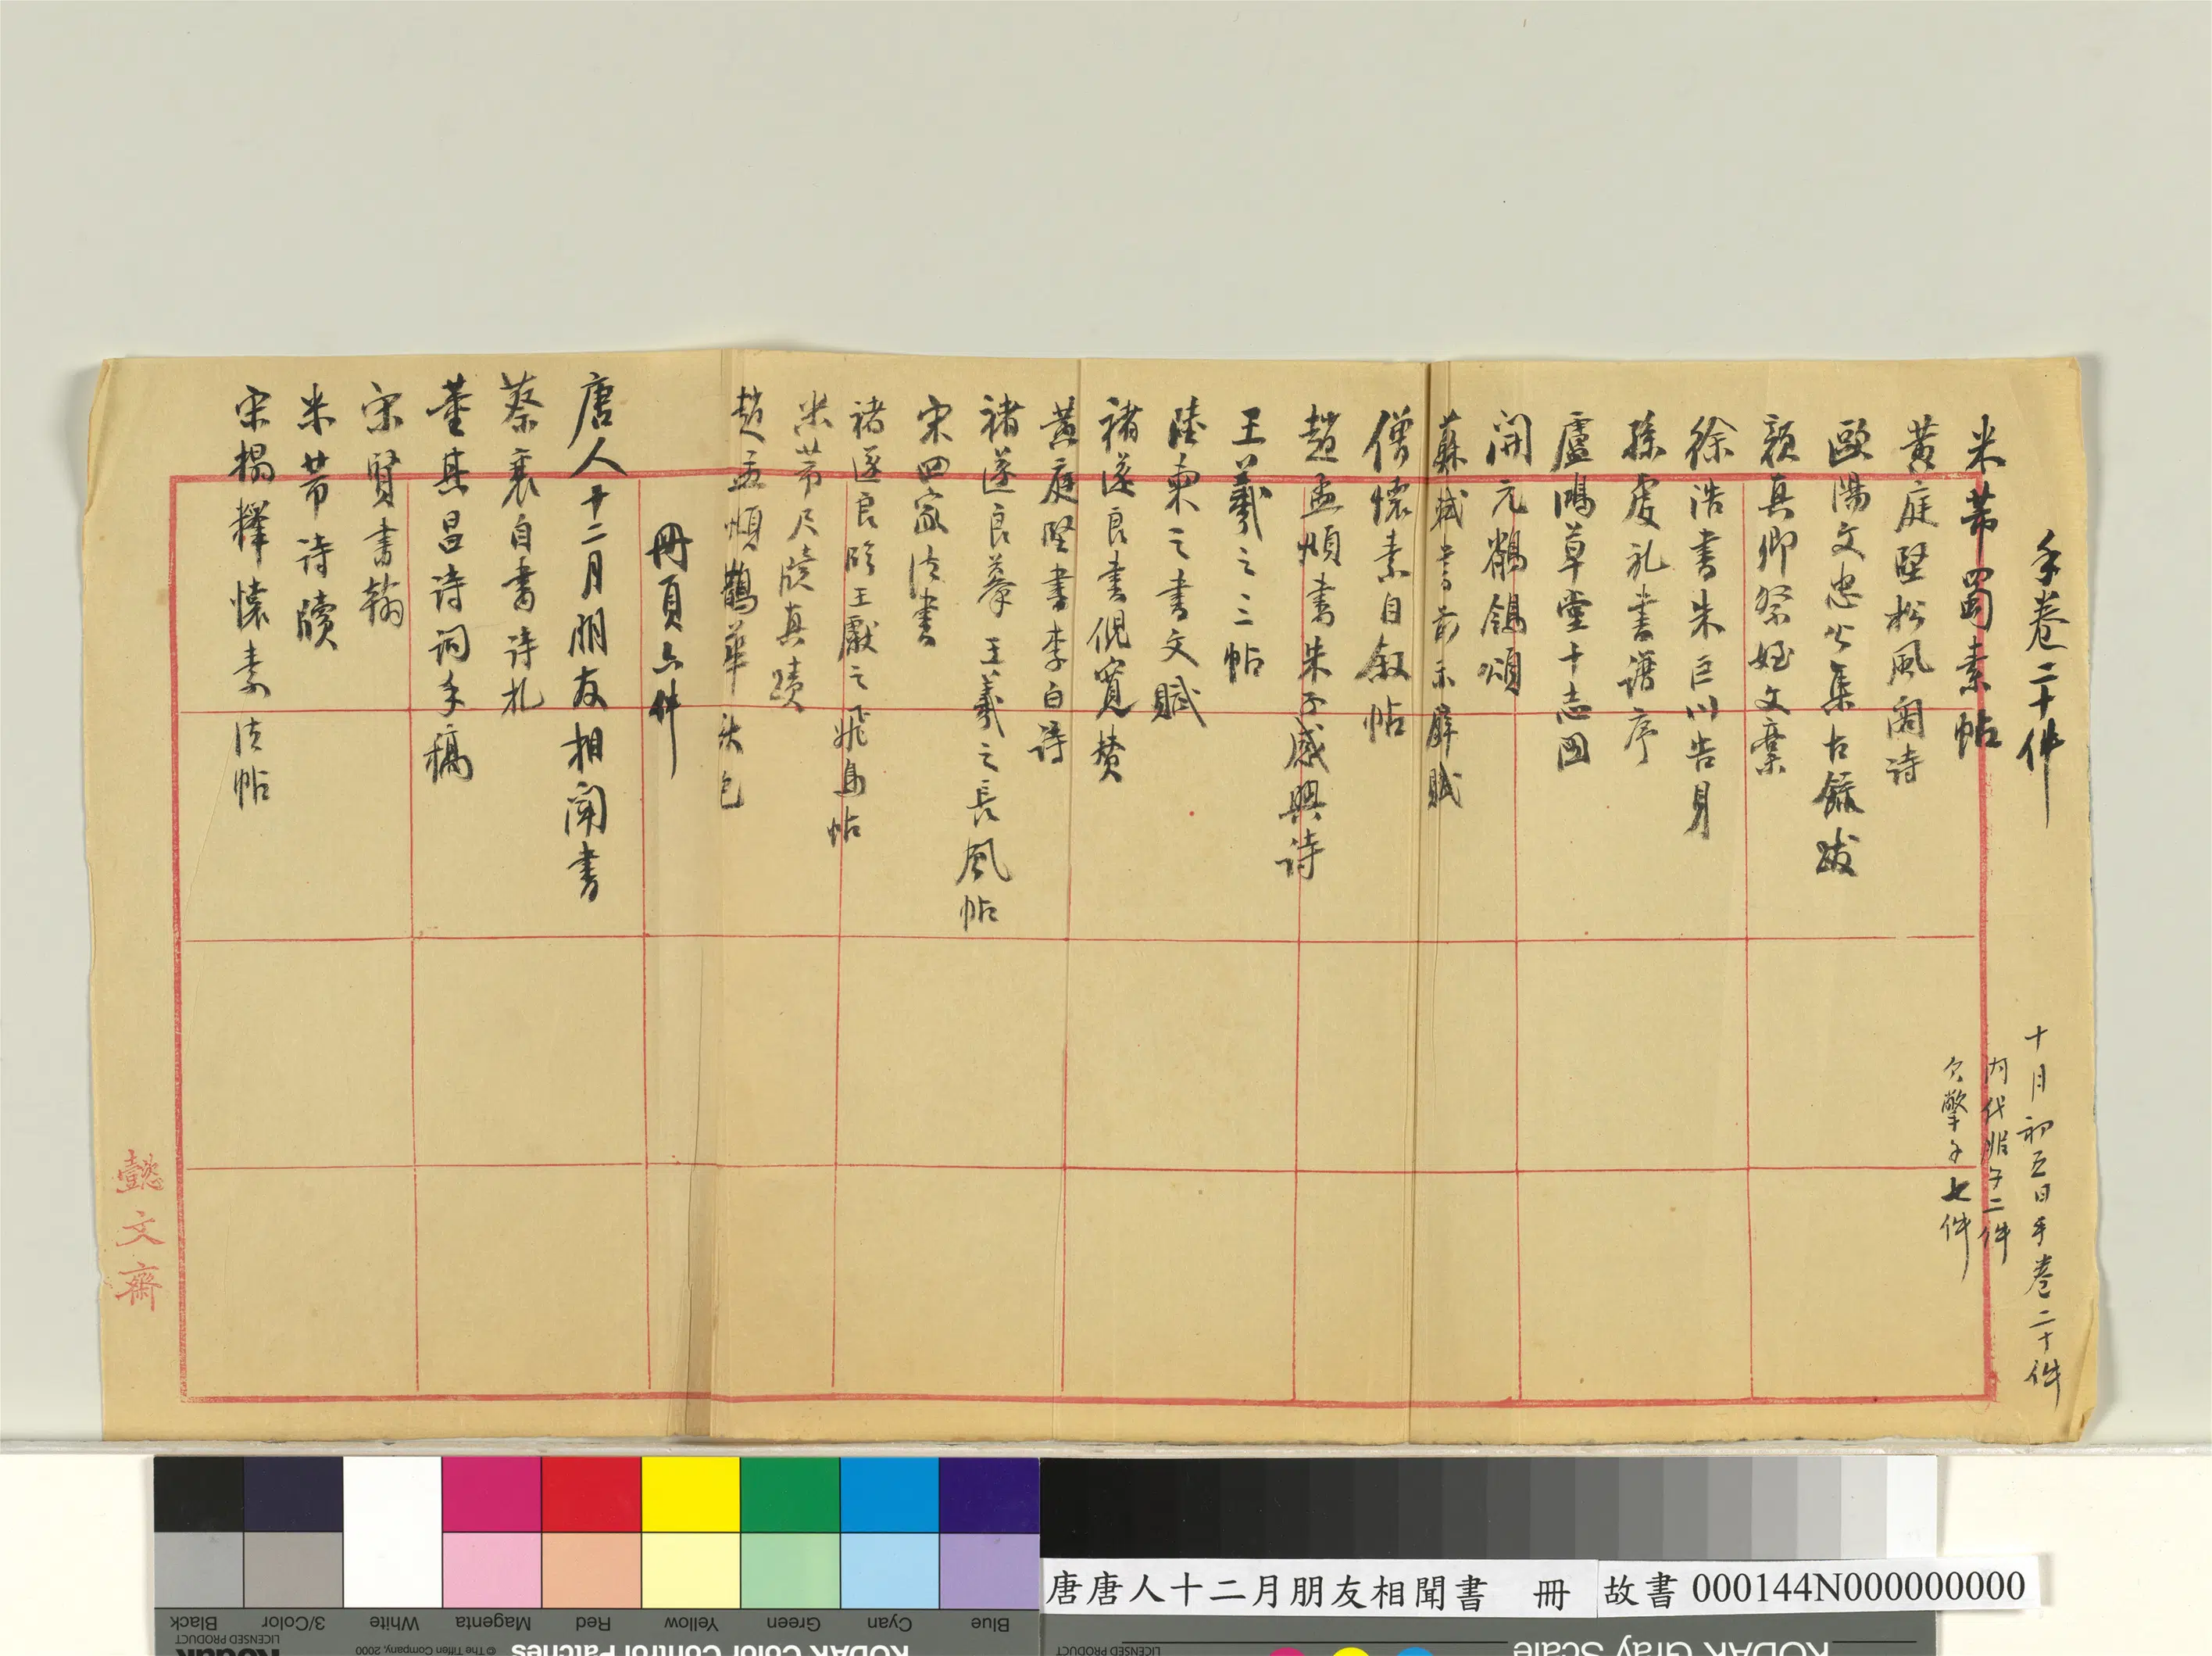 手卷二十件
十月初五日手卷二十件
內代賬子二件
欠擎子七件
米芾蜀素帖
黃庭堅松風閣詩
歐陽文忠公集古錄跋
顏真卿祭姪文稾
徐浩書朱巨川告身
孫虔礼書譜序
盧鴻草堂十志圖
開元鶺鴒頌
蘇軾書前赤壁賦
僧懷素自叙帖
趙孟頫書朱子感興詩
王羲之三帖
陸柬之書文賦
褚遂良書倪寬贊
黃庭堅書李白詩
褚遂良摹王羲之長風帖
宋四家法書
褚遂良臨王獻之飛鳥帖
米芾尺牘真蹟
趙孟頫鵲華秋色
冊頁六件
唐人十二月朋友相聞書
蔡襄自書诗札
董其昌诗词手稿
宋賢書翰
米芾诗牘
宋搨釋懷素法帖
懿文齋
唐唐人十二月朋友相聞書 冊
故書 000144N000000000
Black 3/Color White Magenta Red Yellow Green Cyan Blue
LICENSED PRODUCT
© The Tiffen Company, 2000
Kodak
KODAK Color Control Patches
LICENSED PRODUCT
KODAK Gray Scale